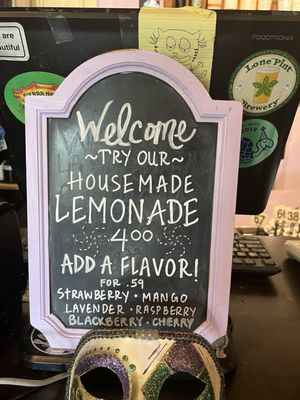 are
Beautiful
FOODTRONIX
Lone Pint
Brewery
SIERRA NE
Welcome
~TRY OUR~
HOUSEMADE
LEMONADE
4.00
ADD A FLAVOR!
FOR .59
STRAWBERRY • MANGO
LAVENDER • RASPBERRY
BLACKBERRY • CHERRY